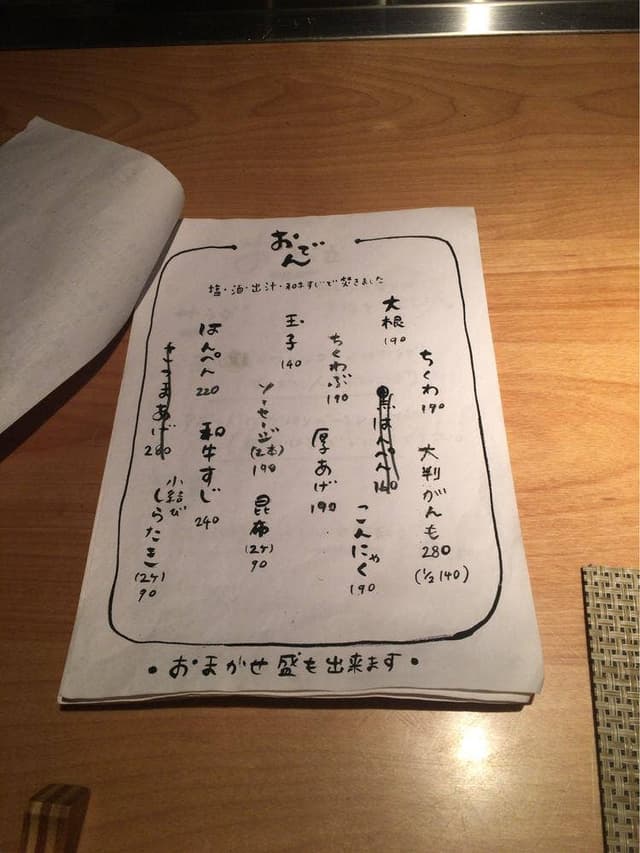 おでん
塩・酒・出汁・和牛すじで焚きました
大根
190
ちくわ
190
玉子
140
ちくわぶ
190
はんぺん
220
黒はんぺん
140
大判がんも
280
(1/2 140)
ソーセージ
(2本)
190
厚あげ
190
さつまあげ
280
和牛すじ
240
こんにゃく
190
昆布
(2ケ)
90
小結び
しらたき
(2ケ)
90
・おまかせ盛も出来ます・